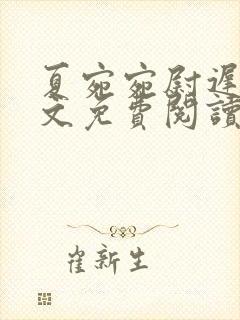 夏宛宛尉遲
文免費閱讀
崔新生